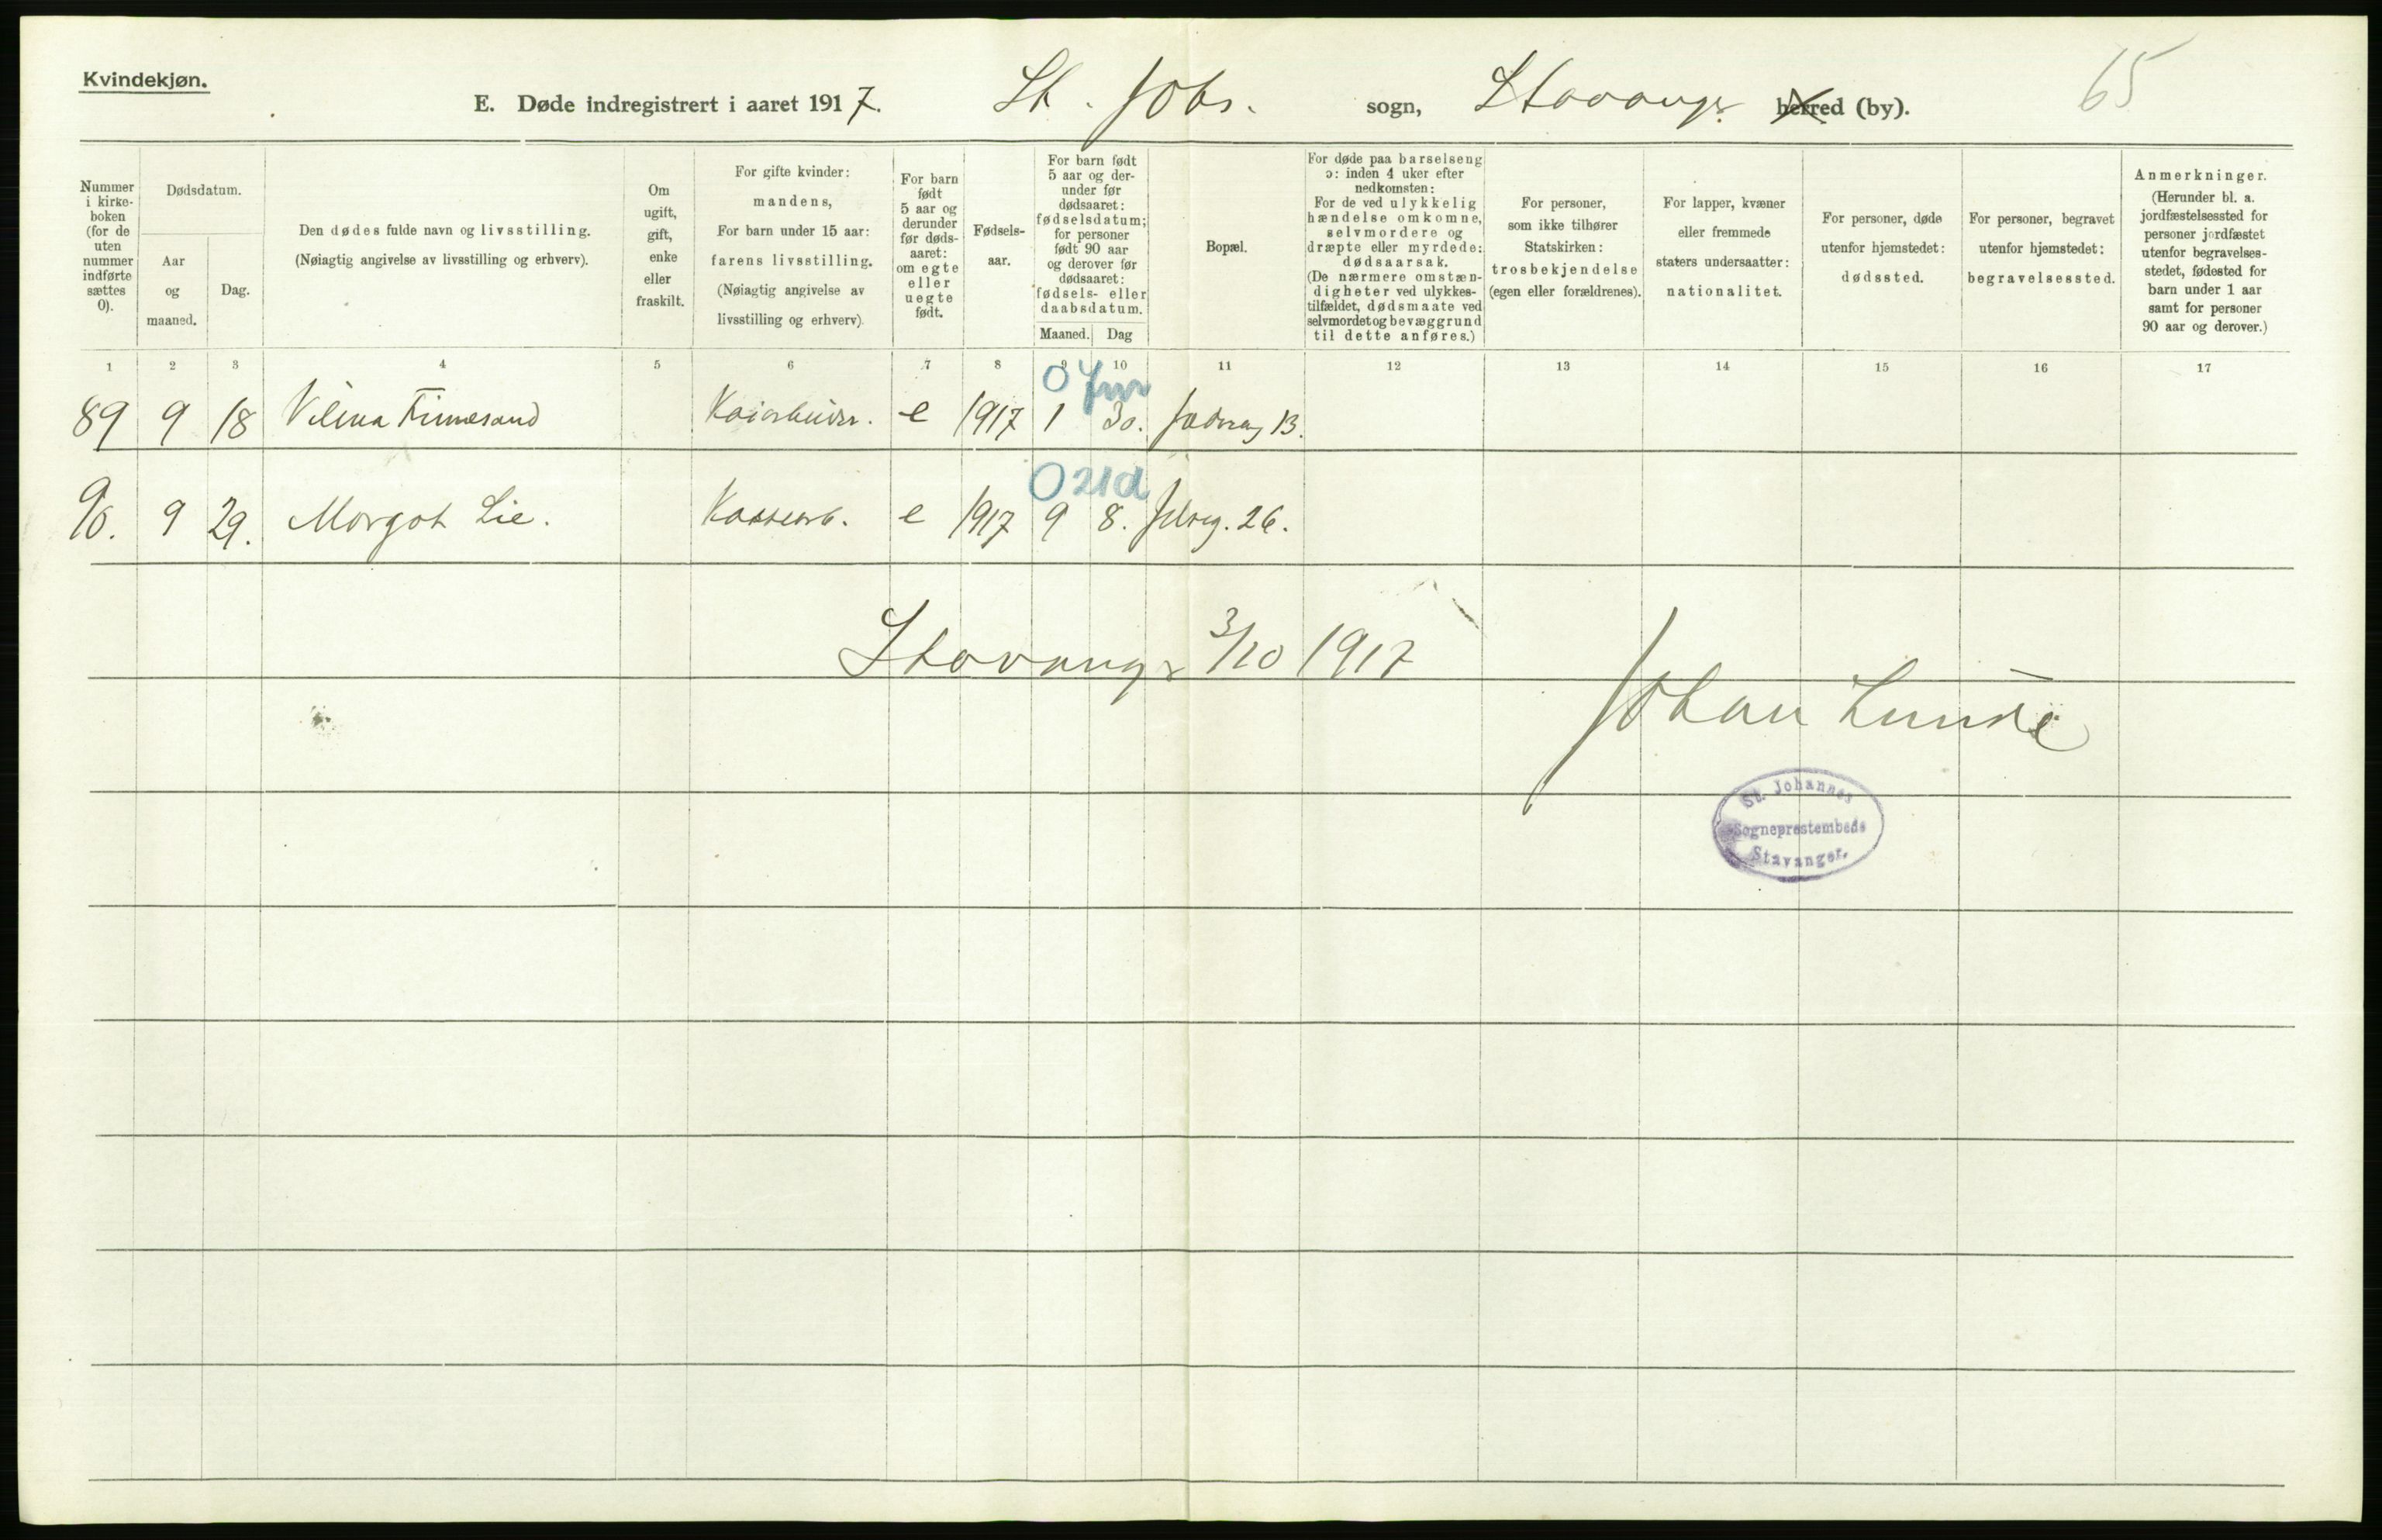 Kvindekjøn.
E. Døde indregistrert i aaret 1917. St. Johs. sogn, Stavanger herred (by). 65
Nummer i kirke-boken (for de uten nummer indførte sættes 0).
Dødsdatum.
Aar og maaned.
Dag.
Den dødes fulde navn og livsstilling.
(Nøiagtig angivelse av livsstilling og erhverv).
Om ugift, gift, enke eller fraskilt.
For gifte kvinder: mandens,
For barn under 15 aar: farens livsstilling.
(Nøiagtig angivelse av livsstilling og erhverv).
For barn født 5 aar og derunder før døds-aaret: om egte eller uegte født.
Fødsels-aar.
For barn født 5 aar og der-under før dødsaaret: fødselsdatum; for personer født 90 aar og derover før dødsaaret: fødsels- eller daabsdatum.
Maaned. Dag
Bopæl.
For døde paa barselseng ɔ: inden 4 uker efter nedkomsten:
For de ved ulykkelig hændelse omkomne, selvmordere og dræpte eller myrdede: dødsaarsak.
(De nærmere omstæn-digheter ved ulykkes-tilfældet, dødsmaate ved selvmordet og bevæggrund til dette anføres.)
For personer, som ikke tilhører Statskirken: trosbekjendelse (egen eller forældrenes).
For lapper, kvæner eller fremmede staters undersaatter: nationalitet.
For personer, døde utenfor hjemstedet: dødssted.
For personer, begravet utenfor hjemstedet: begravelsessted.
Anmerkninger.
(Herunder bl. a. jordfæstelsessted for personer jordfæstet utenfor begravelses-stedet, fødested for barn under 1 aar samt for personer 90 aar og derover.)
1 2 3 4 5 6 7 8 9 10 11 12 13 14 15 16 17
0 7m
89 9 18 Vilma Finnesand e 1917 1 30. 13.
0 21d
90. 9 29. Margot Lie. e 1917 9 8. 26.
Stavanger 3/10 1917
Johan Lunde
St. Johannes
Sogneprestembede
Stavanger.